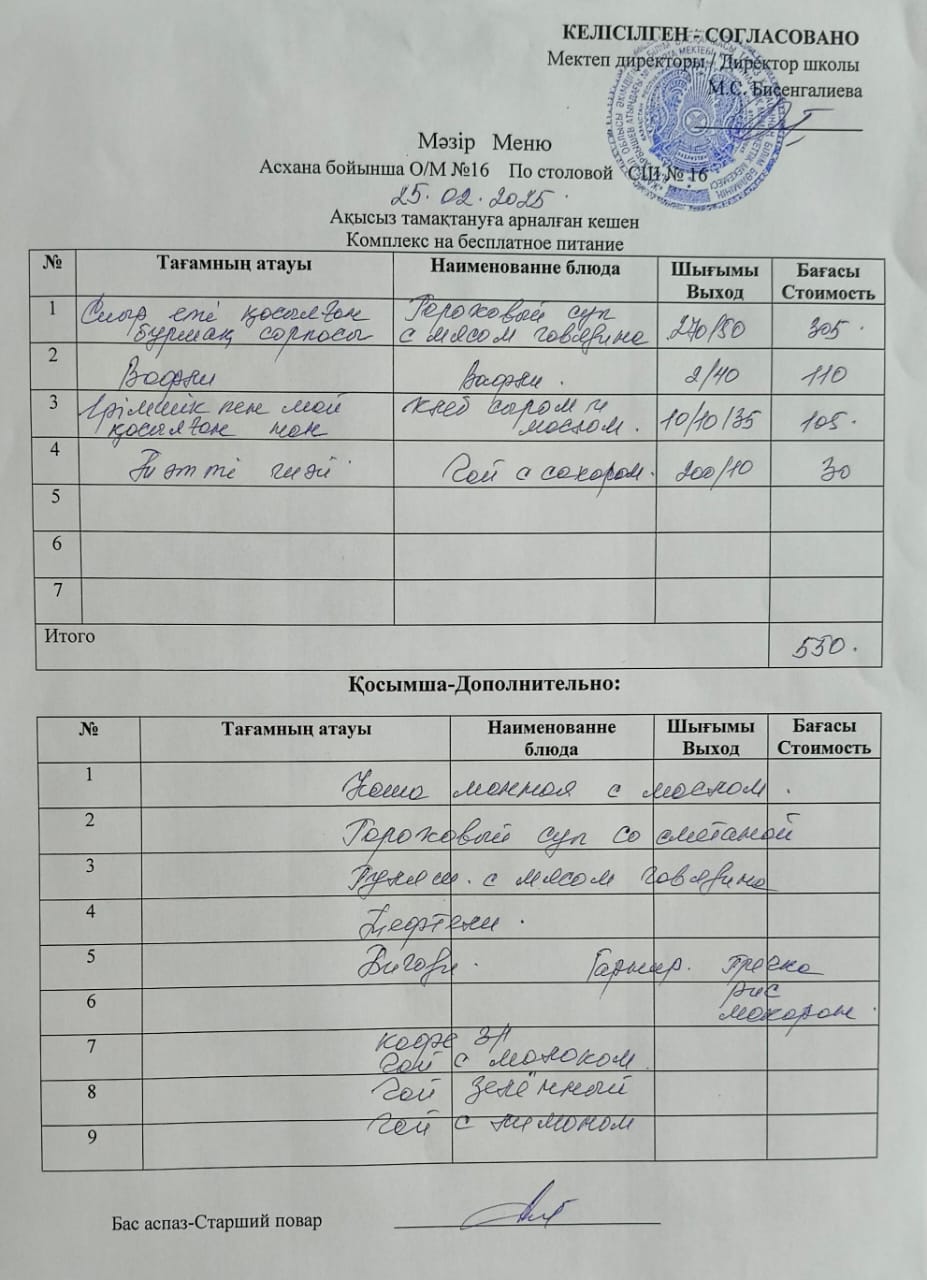 КЕЛІСІЛГЕН - СОГЛАСОВАНО
Мектеп директоры / Директор школы
М.С. Бисенгалиева
Мәзір Меню
Асхана бойынша О/М №16 По столовой СШ № 16
25.02.2025.
Ақысыз тамақтануға арналған кешен
Комплекс на бесплатное питание
№ Тағамның атауы Наименованне блюда Шығымы Выход Бағасы Стоимость
1 Сиыр еті қосылған бұршақ сорпосы Гороховый суп с мясом говядина 270/50 305.
2 Вафли Вафли. 2/40 110
3 Ірімшік пен май қосылған нан хлеб сыром и маслом. 10/10/35 105.
4 Тәтті шәй Чай с сахаром. 200/10 30
5
6
7
Итого 550.
Қосымша-Дополнительно:
№ Тағамның атауы Наименованне блюда Шығымы Выход Бағасы Стоимость
1 Каша манная с маслом.
2 Гороховый суп со сметаной
3 Гуляш. с мясом говядина
4 Тефтели.
5 Бигоди. Гарнир. Гречка
6 рис
макарон.
7 кофе 3/1
чай с молоком.
8 чай зелённый
9 чай с лимоном
Бас аспаз-Старший повар